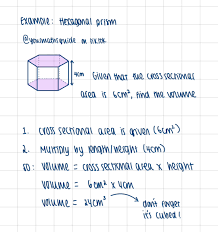 Example: Hexagonal prism
@yourmathsguide on tiktok
4cm
Given that the cross sectional
area is 6cm², find the volume
1. cross sectional area is given (6cm²)
2. Multiply by length/height (4cm)
so: volume = cross sectional area x height
volume = 6cm² x 4cm
volume = 24cm³
don't forget
it's cubed!